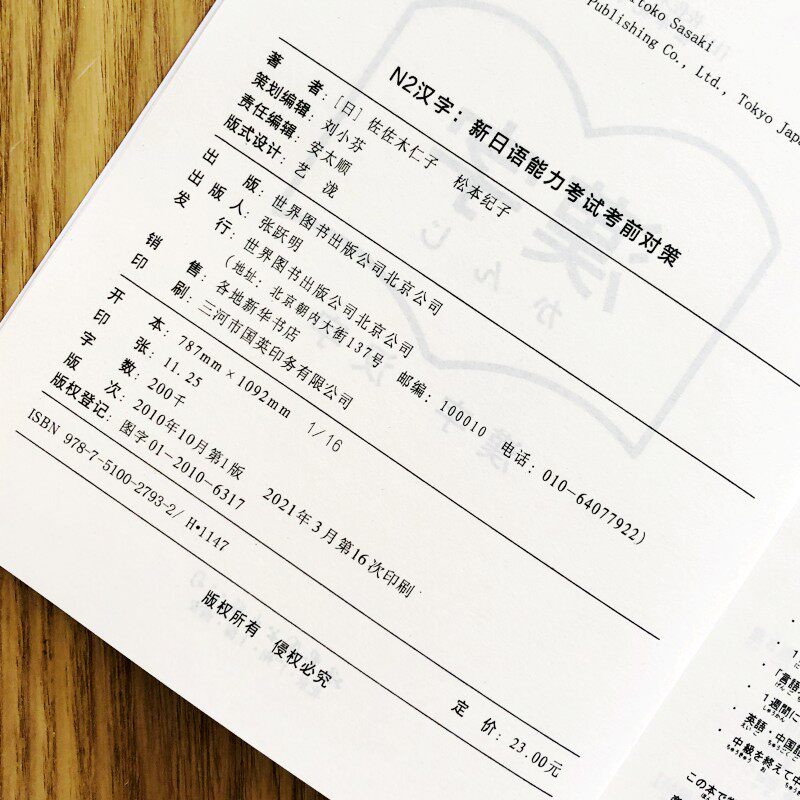 itoko Sasaki
Publishing Co., Ltd., Tokyo Japa
N2汉字：新日语能力考试考前对策
著 者：［日］佐佐木仁子 松本纪子
策划编辑：刘小芬
责任编辑：安太顺
版式设计：艺 泷
出 版：世界图书出版公司北京公司
出 版 人：张跃明
发 行：世界图书出版公司北京公司
（地址：北京朝内大街137号 邮编：100010 电话：010-64077922）
销 售：各地新华书店
印 刷：三河市国英印务有限公司
开 本：787mm×1092mm 1/16
印 张：11.25
字 数：200千
版 次：2010年10月第1版 2021年3月第16次印刷
版权登记：图字01-2010-6317
ISBN 978-7-5100-2793-2/ H·1147
版权所有 侵权必究
定 价：23.00元
・1
・「言語
・1週間に
・英語・中国語
・中級を終えて中
この本で